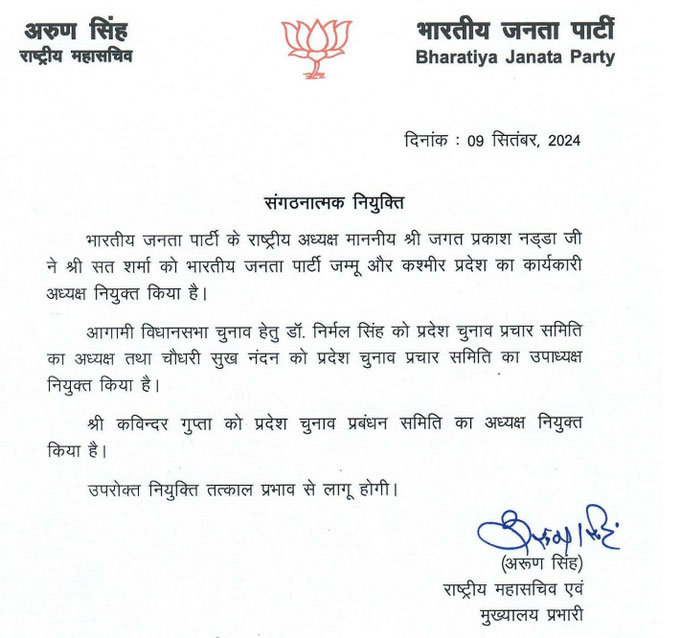 अरुण सिंह
राष्ट्रीय महासचिव
भारतीय जनता पार्टी
Bharatiya Janata Party
दिनांक : 09 सितंबर, 2024
संगठनात्मक नियुक्ति
भारतीय जनता पार्टी के राष्ट्रीय अध्यक्ष माननीय श्री जगत प्रकाश नड्डा जी
ने श्री सत शर्मा को भारतीय जनता पार्टी जम्मू और कश्मीर प्रदेश का कार्यकारी
अध्यक्ष नियुक्त किया है।
आगामी विधानसभा चुनाव हेतु डॉ. निर्मल सिंह को प्रदेश चुनाव प्रचार समिति
का अध्यक्ष तथा चौधरी सुख नंदन को प्रदेश चुनाव प्रचार समिति का उपाध्यक्ष
नियुक्त किया है।
श्री कविन्दर गुप्ता को प्रदेश चुनाव प्रबंधन समिति का अध्यक्ष नियुक्त
किया है।
उपरोक्त नियुक्ति तत्काल प्रभाव से लागू होगी।
(अरूण सिंह)
राष्ट्रीय महासचिव एवं
मुख्यालय प्रभारी